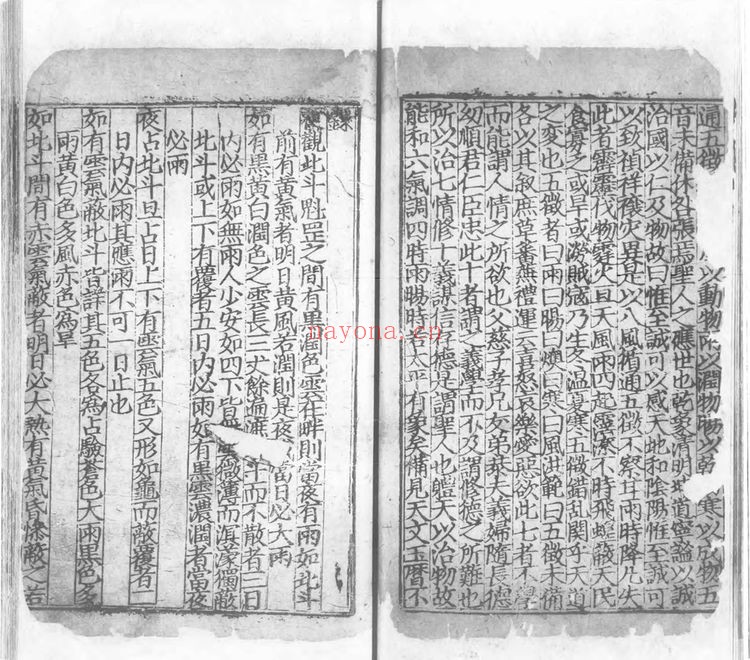 通五徵以動物燥以潤物暘以乾寒以成物五
音未備休咎張焉聖人之應世也乾象清明地道寧謐以誠
治國以仁及物故曰惟至誠可以感天地和陰陽惟至誠可
以致禎祥穰灾異是以八風循通五徵不察甘雨時降凡失
此者霜雹伐物霧火亘天風雨四起靈液不時飛蝗蔽天民
食寡之或旱或澇賊寇乃生冬溫夏寒五徵錯乱関乎天道
之變也五徵者曰雨曰暘曰燠曰寒曰風洪範曰五徵來備
各以其敘庶草蕃蕪禮運云喜怒哀樂愛惡欲此七者不學
而能謂人情之所欲也父慈子孝兄友弟恭夫義婦隨長德
㓜順君仁臣忠此十者謂之義學而不及謂修德之所難也
所以治七情修十義謀信脩德是謂聖人也體天以治物故
能和六氣調四時雨暘時太平有象矣備見天文玉曆不
錄
觀北斗魁罡之間有黒潤色雲在畔則當夜有雨如北斗
前有黃氣者明日黃風若潤則是夜當日必大雨
如有黒黃白潤色之雲長三丈餘遍北斗而不散者三日
内必雨如無雨人少安如四下皆微薄而滋漢獨蔽
北斗或上下有覆者五日内必雨如有黒雲濃潤者當夜
必雨
夜占北斗旦占日上下有雲氣五色又形如龜而蔽覆者二
日内必雨其應雨不可一日止也
如有雲氣蔽北斗皆詳其五色各為占驗蒼色大雨黒色多
雨黃白色多風赤色為旱
如北斗間有赤雲氣蔽者明日必大熱有黃氣昏慘蔽入若
nayona.cn